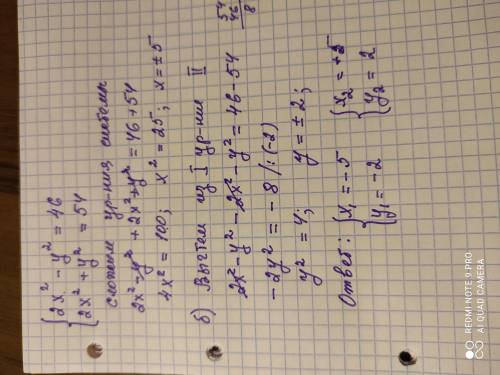 {2x² - y² = 46
{2x² + y² = 54
54
46
8
сложим ур-ния системы
2x² - y² + 2x² + y² = 46 + 54
4x² = 100; x² = 25; x = ±5
б) Вычтем из I ур-ния II
2x² - y² - 2x² - y² = 46 - 54
-2y² = -8 /:(-2)
y² = 4; y = ±2;
Ответ: {x₁ = -5 {x₂ = +5
{y₁ = -2 {y₂ = 2
REDMI NOTE 9 PRO
AI QUAD CAMERA